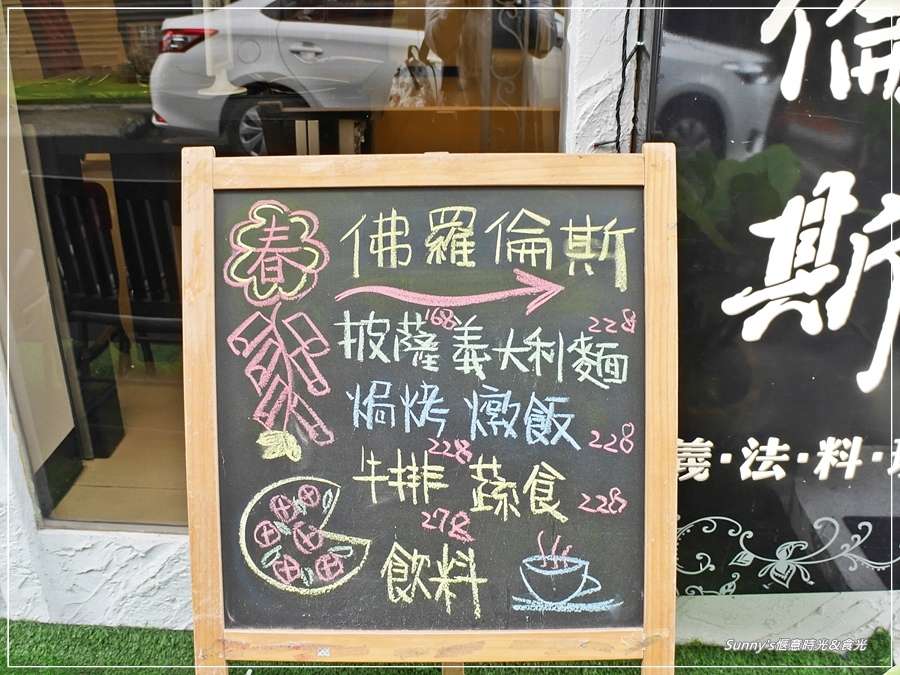 春
佛羅倫斯
168 228
披薩義大利麵
焗烤燉飯 228
228
牛排 蔬食 228
278
飲料
倫
斯
義·法·料·理
Sunny's愜意時光&食光